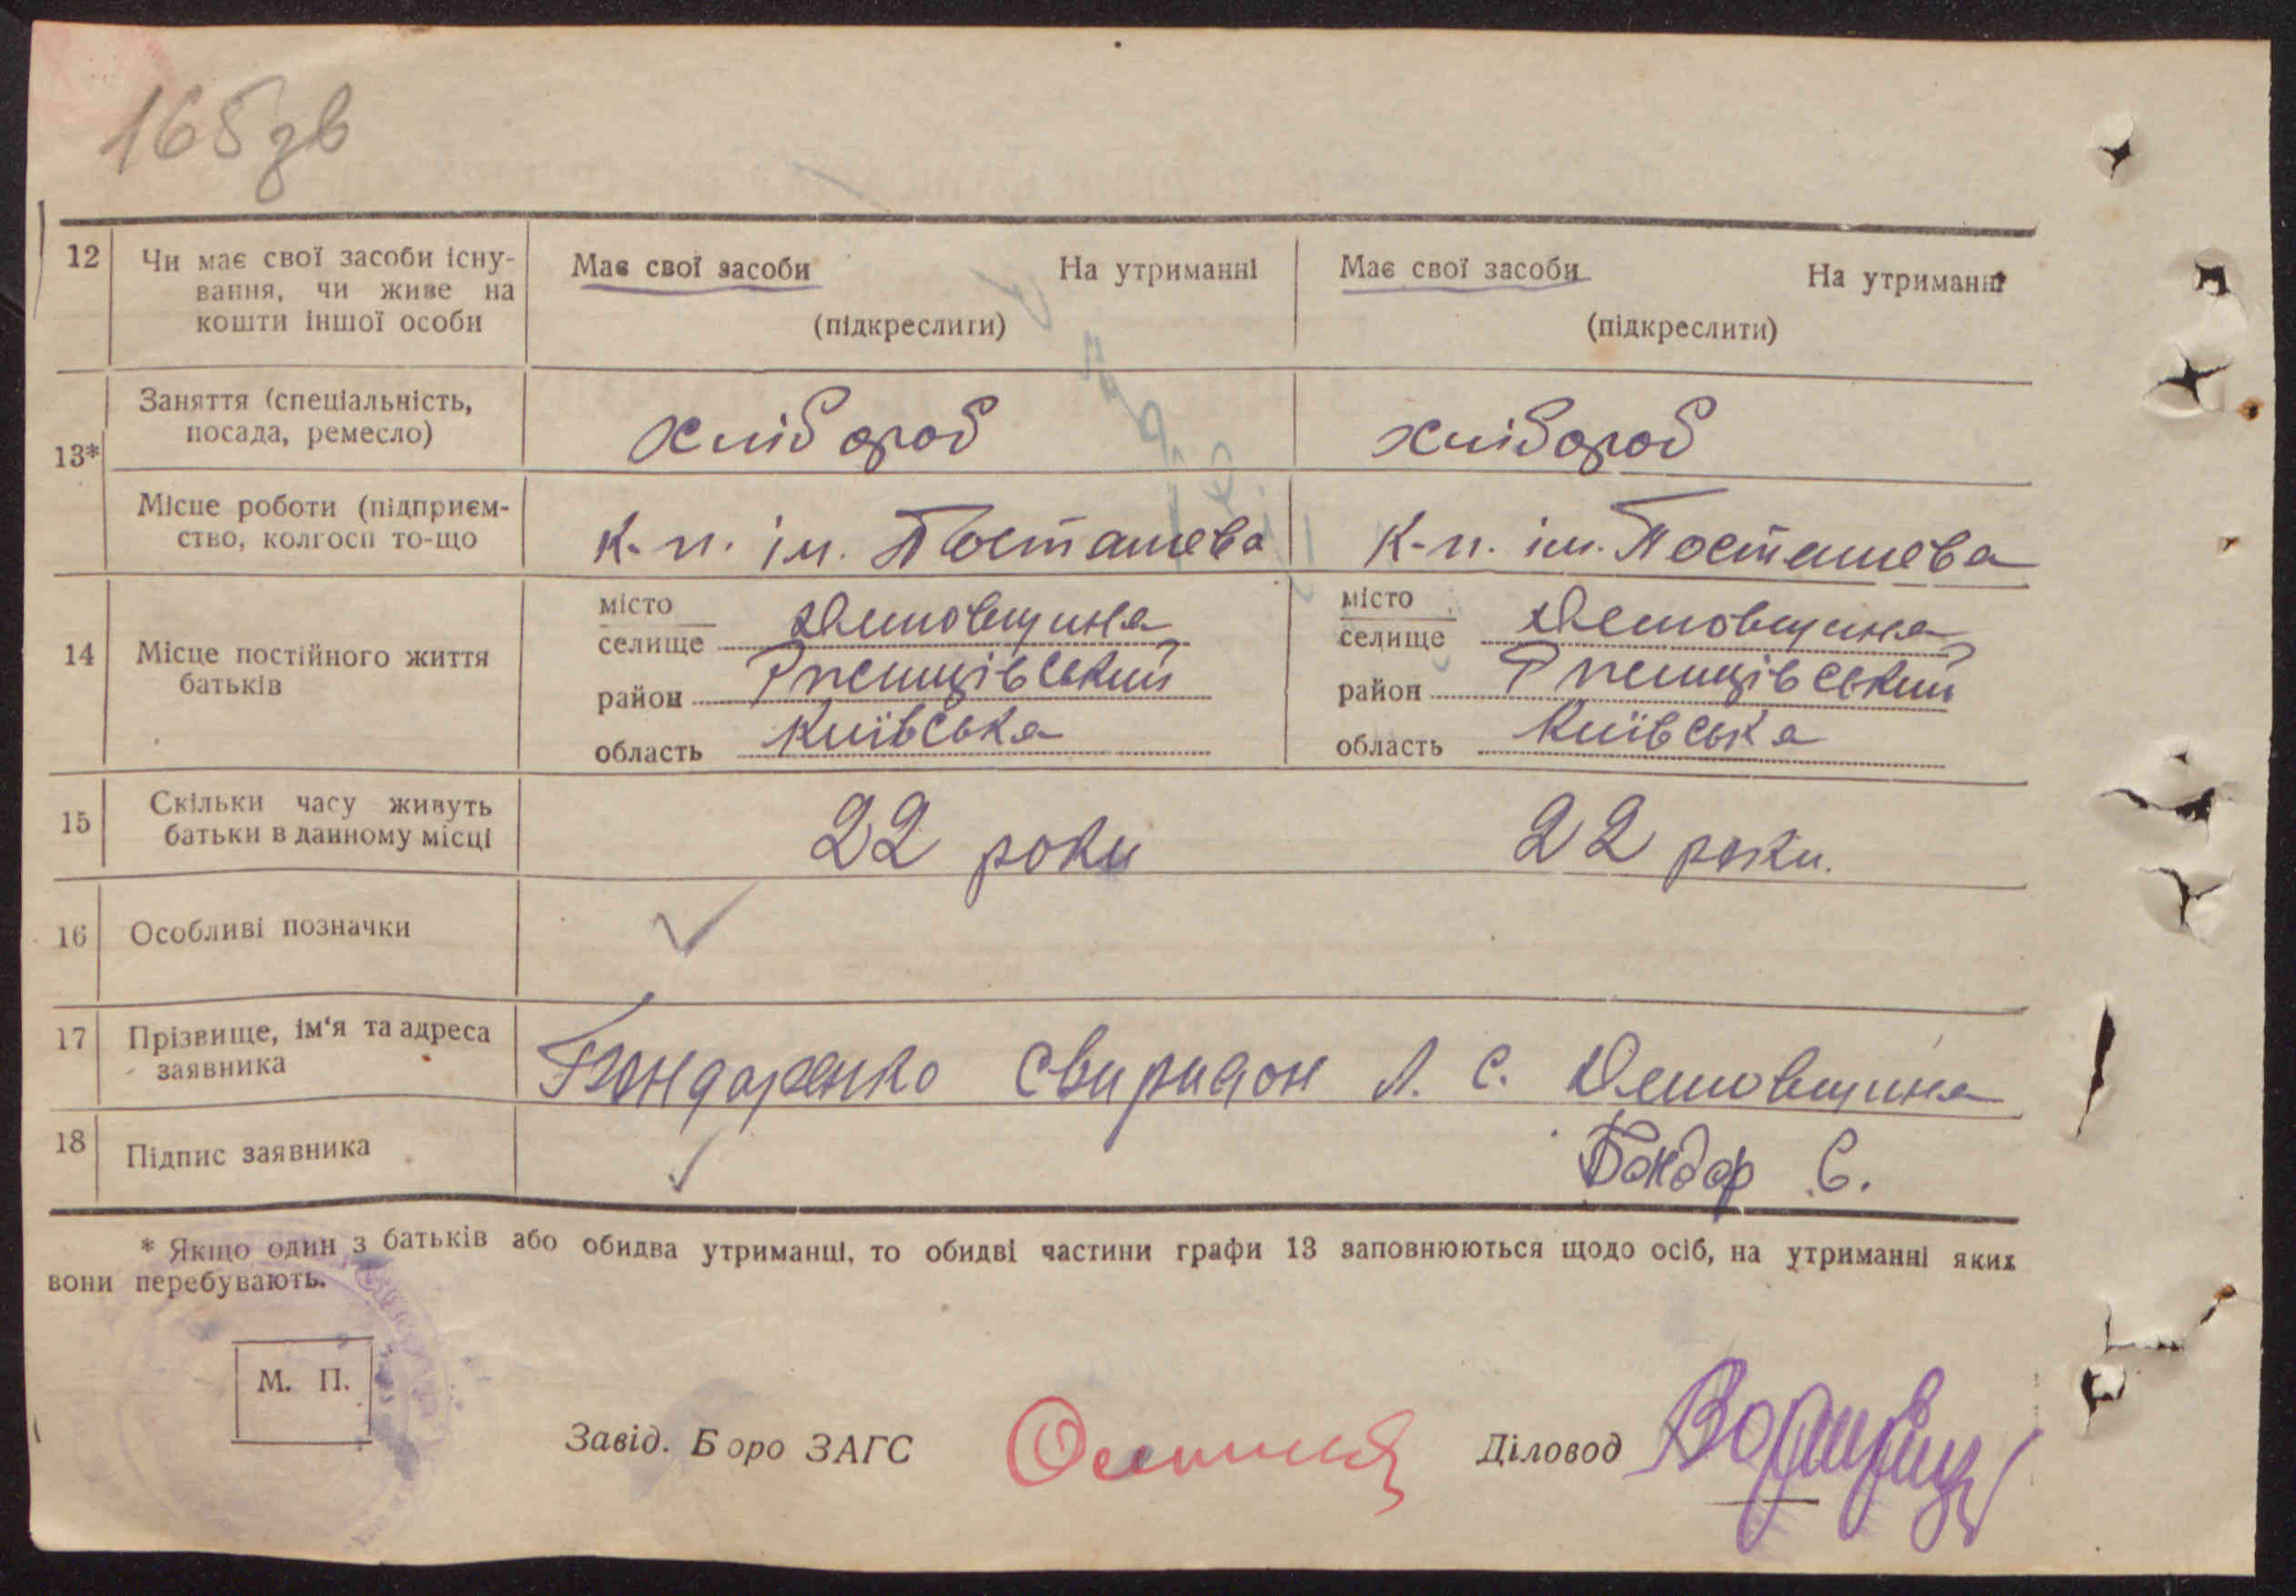 165зв
12 Чи має свої засоби існу-
вання, чи живе на
кошти іншої особи
Має свої засоби На утриманні
(підкреслити)
Має свої засоби На утриманні
(підкреслити)
13*
Заняття (спеціальність,
посада, ремесло)
хлібороб
хлібороб
Місце роботи (підприєм-
ство, колгосп то-що
к-п. ім. Посташева
к-п. ім. Посташева
14 Місце постійного життя
батьків
місто
селище Демовщина
район Ржищівський
область Київська
місто
селище Демовщина
район Ржищівський
область Київська
15 Скільки часу живуть
батьки в данному місці
22 роки
22 роки.
16 Особливі позначки
17 Прізвище, ім'я та адреса
заявника
Бондаренко Свиридон Л. С. Демовщина
18 Підпис заявника
Бондар С.
* Якщо один з батьків або обидва утриманці, то обидві частини графи 13 заповнюються щодо осіб, на утриманні яких
вони перебувають.
М. П.
Завід. Боро ЗАГС
Діловод